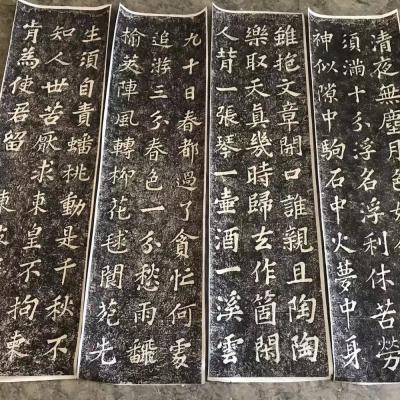 清夜無塵月色如
須滿十分浮名浮利休苦勞
神似隙中駒石中火夢中身
雖抱文章開口誰親且陶陶
樂取天真幾時歸去作箇閑
人背一張琴一壺酒一溪雲
九十日春都過了貪忙何處
追游三分春色一分愁雨翻
榆莢陣風轉柳花毬閬苑先
生須自責蟠桃動是千秋不
知人世苦厭求東皇不拘束
肯為使君留